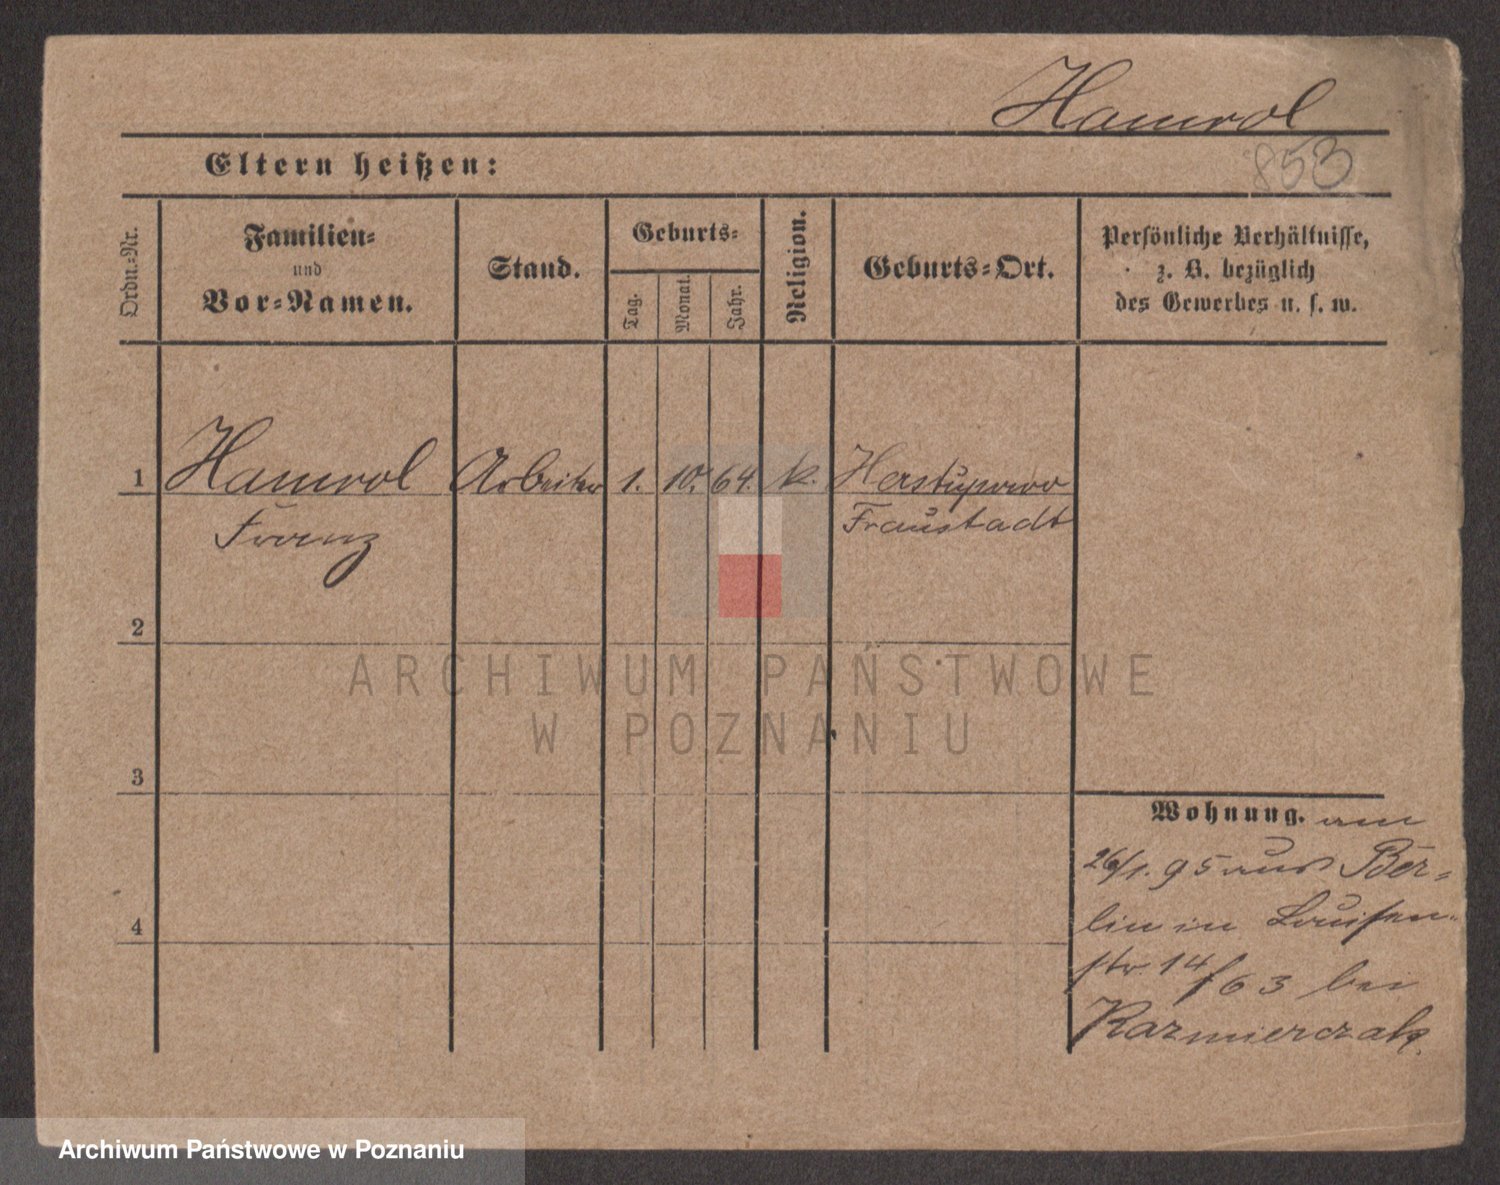 Hamrol
853
Eltern heißen:
Ordn.-Nr.
Familien-
und
Vor-Namen.
Stand.
Geburts-
Tag.
Monat.
Jahr.
Religion.
Geburts-Ort.
Persönliche Verhältnisse,
z. B. bezüglich
des Gewerbes u. s. w.
1 Hamrol Arbeiter 1. 10. 64. k. Herstupowo
Franz Fraustadt
2
3
4
Wohnung. am
26/1. 95 aus Ber-
lin in Louisen-
str. 14/63 bei
Kazmierczak.
ARCHIWUM PAŃSTWOWE
W POZNANIU
Archiwum Państwowe w Poznaniu